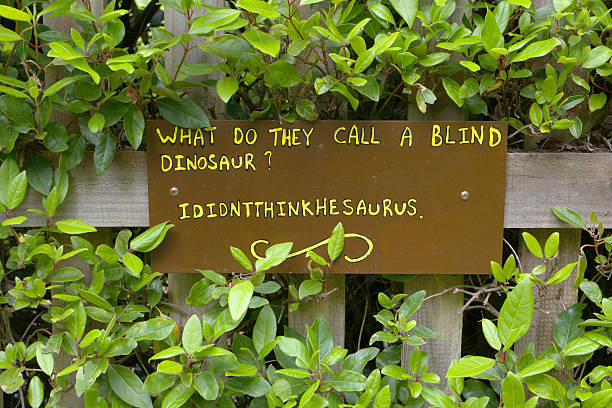 WHAT DO THEY CALL A BLIND
DINOSAUR?
IDIDNTTHINKHESAURUS.